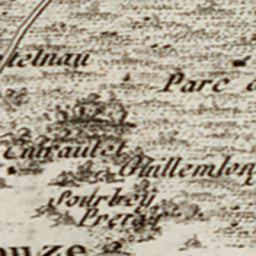 telnau
Parc
Cutrautet
Guillemlon
Sourbey
Preray
ouze